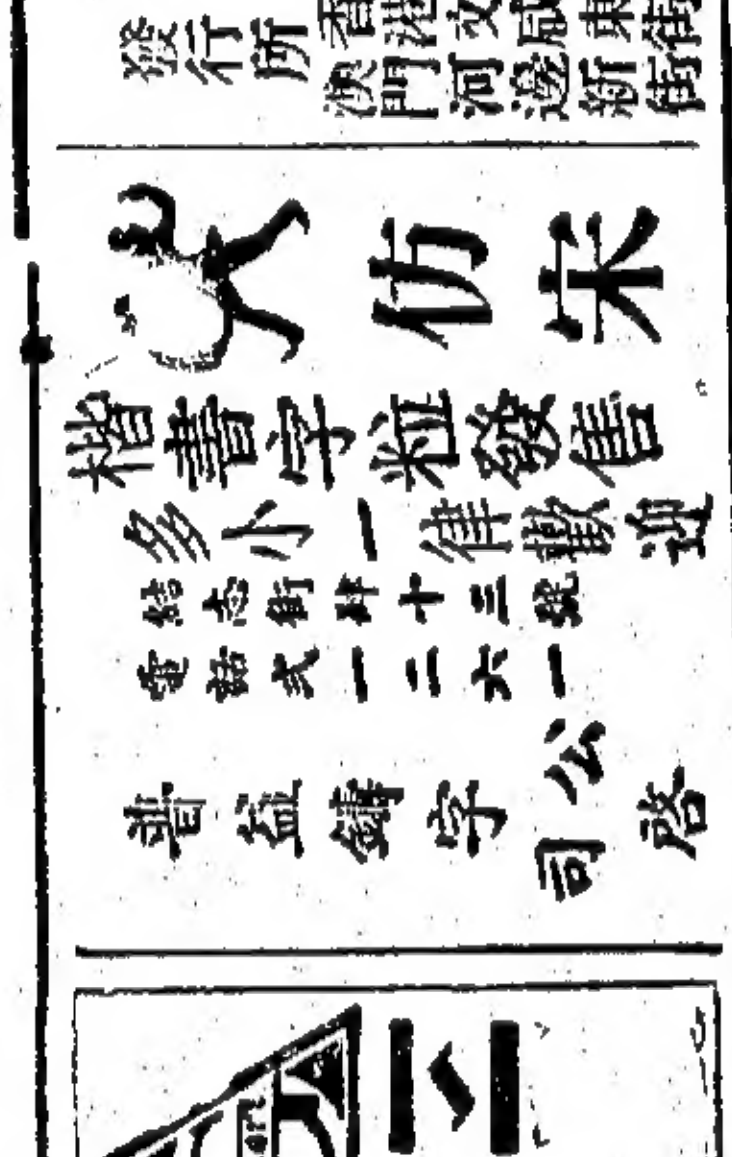 發行所
香港文咸東街
澳門河邊新街
大仿宋
楷書字粒發售
多小一律歡迎
結志街肆十三號
電話弍一二六一
普益鑄字公司啓